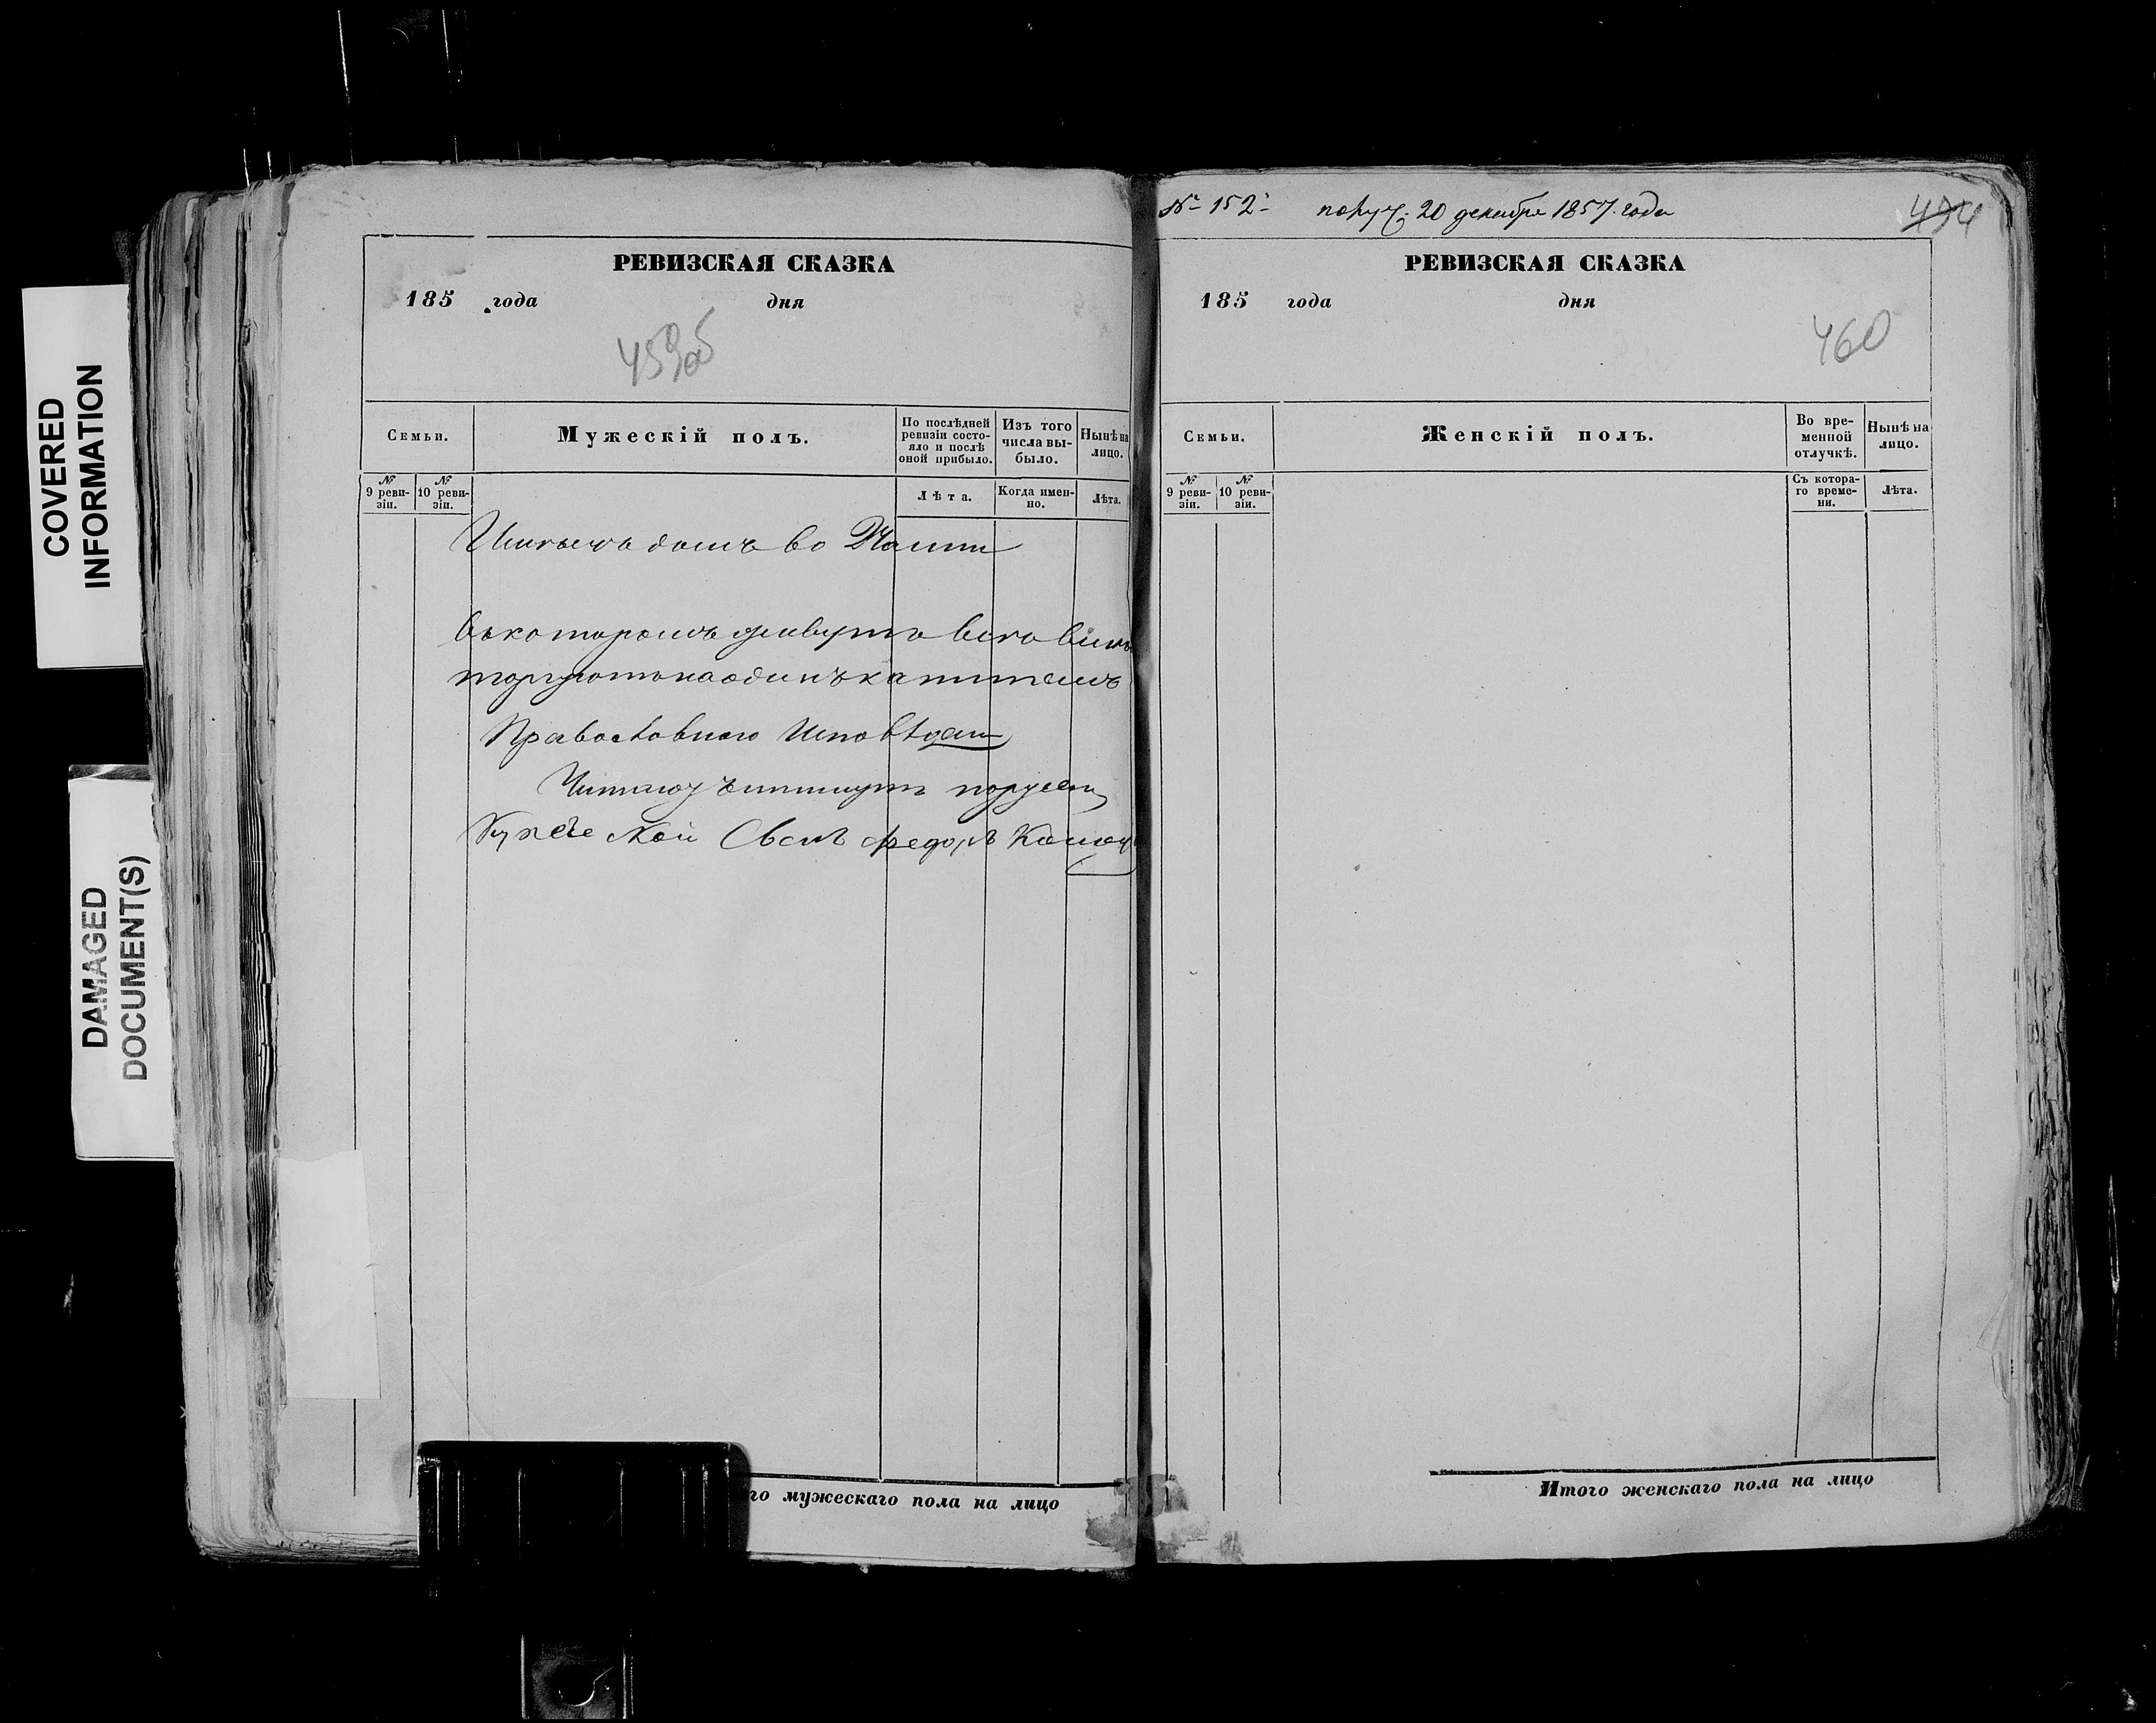 COVERED
INFORMATION
DAMAGED
DOCUMENT(S)
РЕВИЗСКАЯ СКАЗКА
185 года дня
459об
Семьи. Мужескій полъ. По послѣдней ревизіи состояло и послѣ оной прибыло. Изъ того числа выбыло. Нынѣ на лицо.
№ 9 ревизіи. № 10 ревизіи. Лѣта. Когда именно. Лѣта.
домъ во части
въ которомъ живутъ
торгуютъ на одинъ капиталъ
Православнаго Исповѣдан
Читаютъ и пишутъ порусски
Купеческой Федоръ
го мужескаго пола на лицо
№ 152 получ. 20 декабря 1857 года
РЕВИЗСКАЯ СКАЗКА
185 года дня
460
Семьи. Женскій полъ. Во временной отлучкѣ. Нынѣ на лицо.
№ 9 ревизіи. № 10 ревизіи. Съ котораго времени. Лѣта.
Итого женскаго пола на лицо